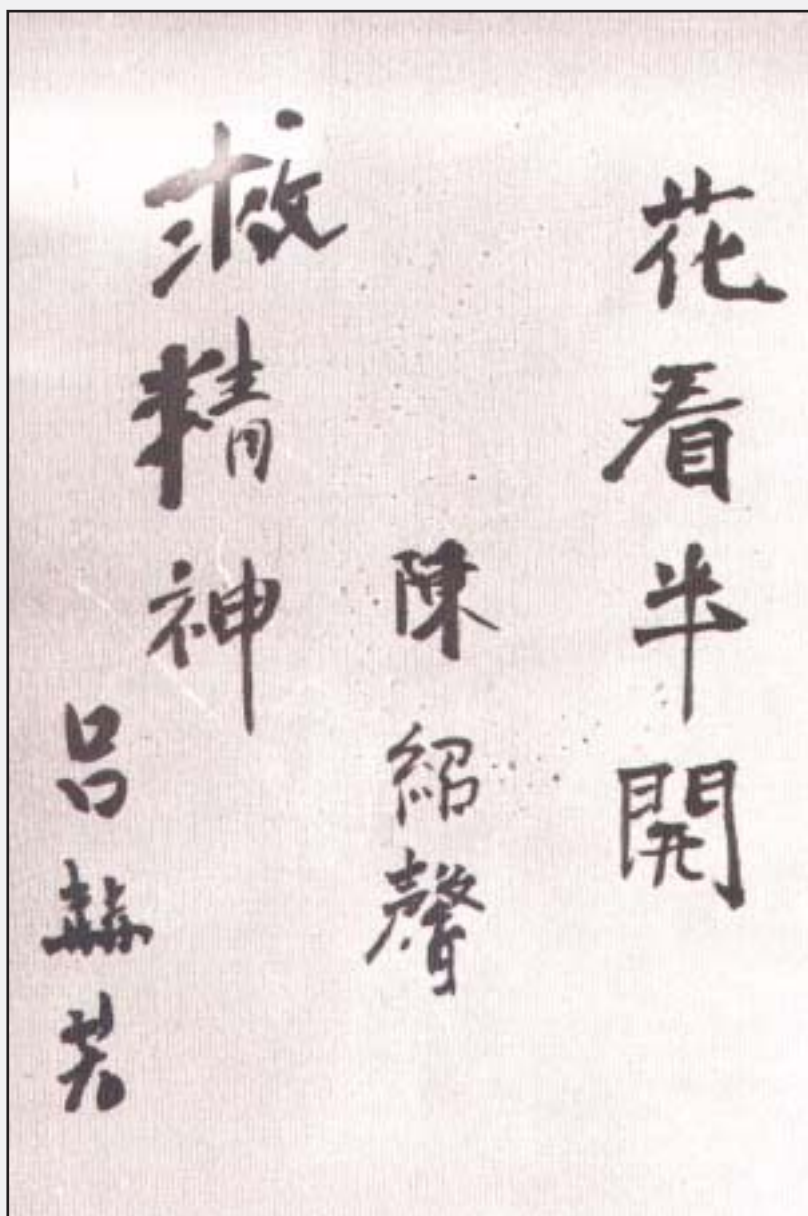 花看半開
陳紹聲
救精神
呂赫若